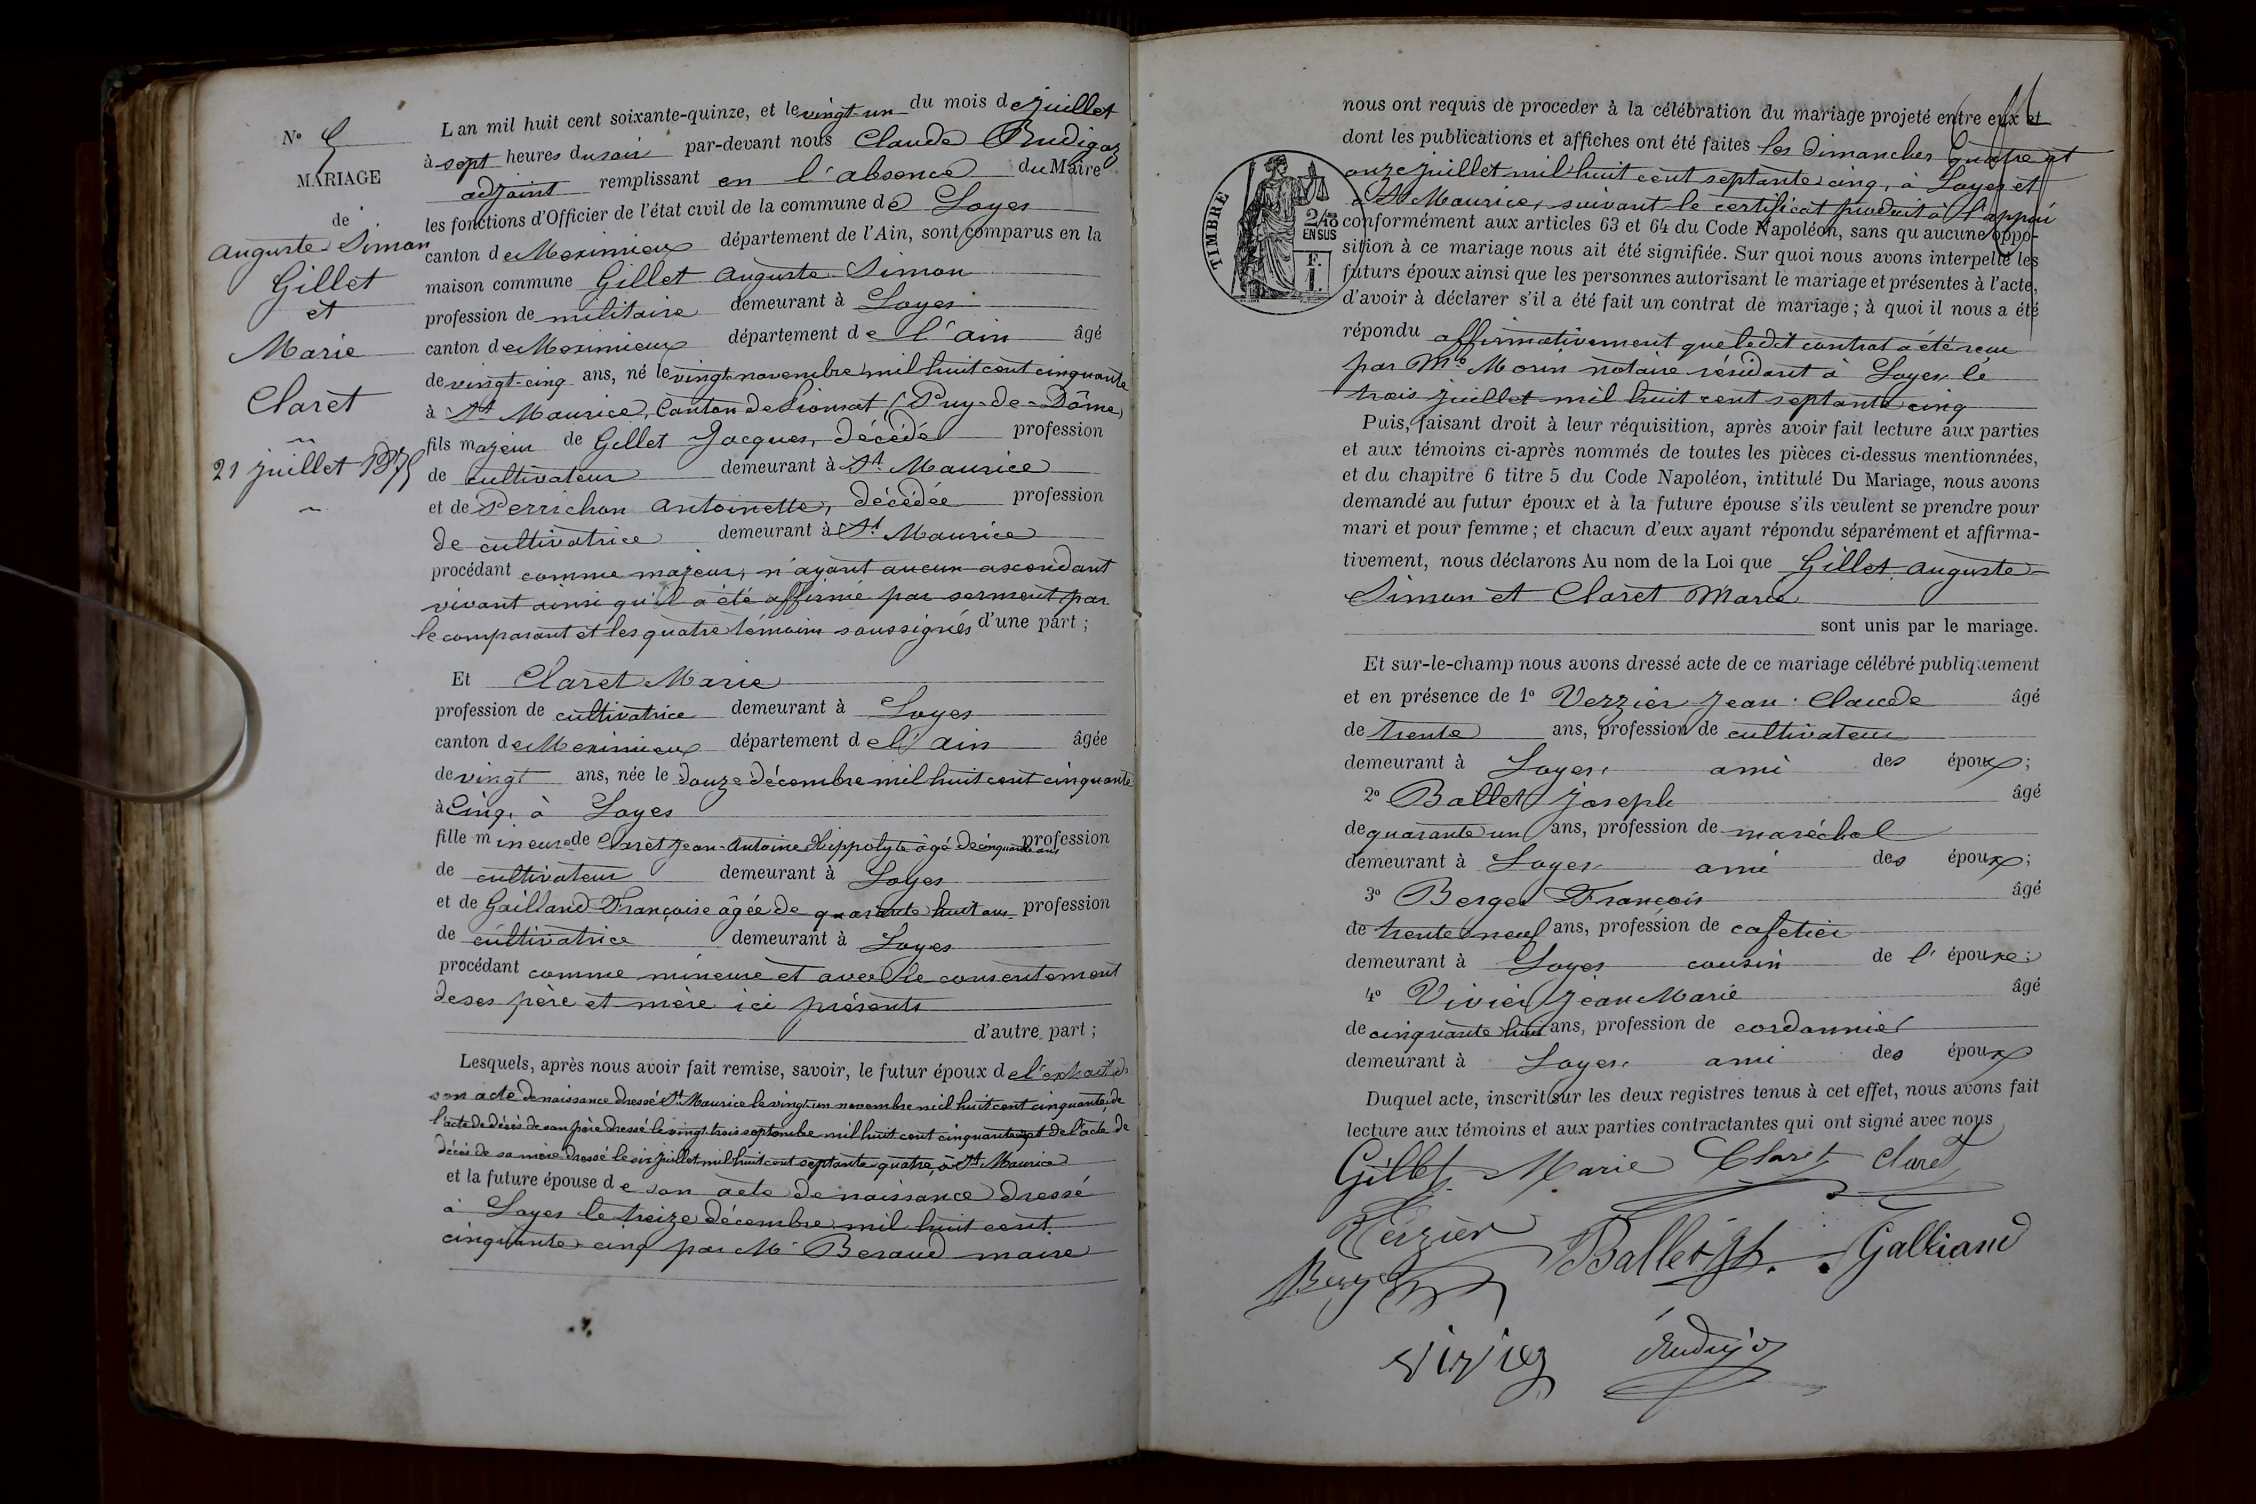 N° 5
MARIAGE
de
Auguste Simon
Gillet
et
Marie
Claret
21 juillet 1875
L'an mil huit cent soixante-quinze, et le vingt-un du mois de juillet
à sept heures du soir par-devant nous Claude Rudigoz
adjoint remplissant en l'absence du Maire
les fonctions d'Officier de l'état civil de la commune de Loyes
canton de Meximieux département de l'Ain, sont comparus en la
maison commune Gillet Auguste Simon
profession de militaire demeurant à Loyes
canton de Meximieux département de l'ain âgé
de vingt-cinq ans, né le vingt novembre mil huit cent cinquante
à St Maurice, Canton de Pionsat (Puy-de-Dôme)
fils majeur de Gillet Jacques, décédé profession
de cultivateur demeurant à St Maurice
et de Perrichon Antoinette, décédée profession
de cultivatrice demeurant à St Maurice
procédant comme majeur, n'ayant aucun ascendant
vivant ainsi qu'il a été affirmé par serment par
le comparant et les quatre témoins soussignés d'une part ;
Et Claret Marie
profession de cultivatrice demeurant à Loyes
canton de Meximieux département de l'ain âgée
de vingt ans, née le douze décembre mil huit cent cinquante
à Cinq, à Loyes
fille mineure de Claret Jean-Antoine Hippolyte âgé de cinquante ans profession
de cultivateur demeurant à Loyes
et de Gailland Françoise âgée de quarante huit ans profession
de cultivatrice demeurant à Loyes
procédant comme mineure et avec le consentement
de ses père et mère ici présents
d'autre part ;
Lesquels, après nous avoir fait remise, savoir, le futur époux de l'extrait de
son acte de naissance dressé St Maurice le vingt un novembre mil huit cent cinquante, de
l'acte de décès de son père dressé le vingt trois septembre mil huit cent cinquante sept de l'acte de
décès de sa mère dressé le six juillet mil huit cent septante quatre, à St Maurice
et la future épouse de son acte de naissance dressé
à Loyes le treize décembre mil huit cent
cinquante cinq par Mr Beraud maire
nous ont requis de proceder à la célébration du mariage projeté entre eux et
dont les publications et affiches ont été faites les dimanches quatre et
onze juillet mil huit cent septante cinq, à Loyes et
à St Maurice, suivant le certificat produit à l'appui
TIMBRE
2/10
EN SUS
F.
1.
conformément aux articles 63 et 64 du Code Napoléon, sans qu'aucune oppo-
sition à ce mariage nous ait été signifiée. Sur quoi nous avons interpellé les
futurs époux ainsi que les personnes autorisant le mariage et présentes à l'acte,
d'avoir à déclarer s'il a été fait un contrat de mariage ; à quoi il nous a été
répondu affirmativement que ledit contrat a été reçu
par Me Morin notaire résidant à Loyes le
trois juillet mil huit cent septante cinq
Puis, faisant droit à leur réquisition, après avoir fait lecture aux parties
et aux témoins ci-après nommés de toutes les pièces ci-dessus mentionnées,
et du chapitre 6 titre 5 du Code Napoléon, intitulé Du Mariage, nous avons
demandé au futur époux et à la future épouse s'ils veulent se prendre pour
mari et pour femme ; et chacun d'eux ayant répondu séparément et affirma-
tivement, nous déclarons Au nom de la Loi que Gillet Auguste
Simon et Claret Marie
sont unis par le mariage.
Et sur-le-champ nous avons dressé acte de ce mariage célébré publiquement
et en présence de 1° Verzier Jean Claude âgé
de trente ans, profession de cultivateur
demeurant à Loyes, ami des époux ;
2° Ballet Joseph âgé
de quarante un ans, profession de maréchal
demeurant à Loyes ami des époux ;
3° Berger François âgé
de trente neuf ans, profession de cafetier
demeurant à Loyes cousin de l'épouxe ;
4° Vivier Jean Marie âgé
de cinquante huit ans, profession de cordonnier
demeurant à Loyes, ami des époux
Duquel acte, inscrit sur les deux registres tenus à cet effet, nous avons fait
lecture aux témoins et aux parties contractantes qui ont signé avec nous
Gillet Marie Claret Claret
Verzier Ballet Jph. Galliand
Berger
vivier Rudigoz